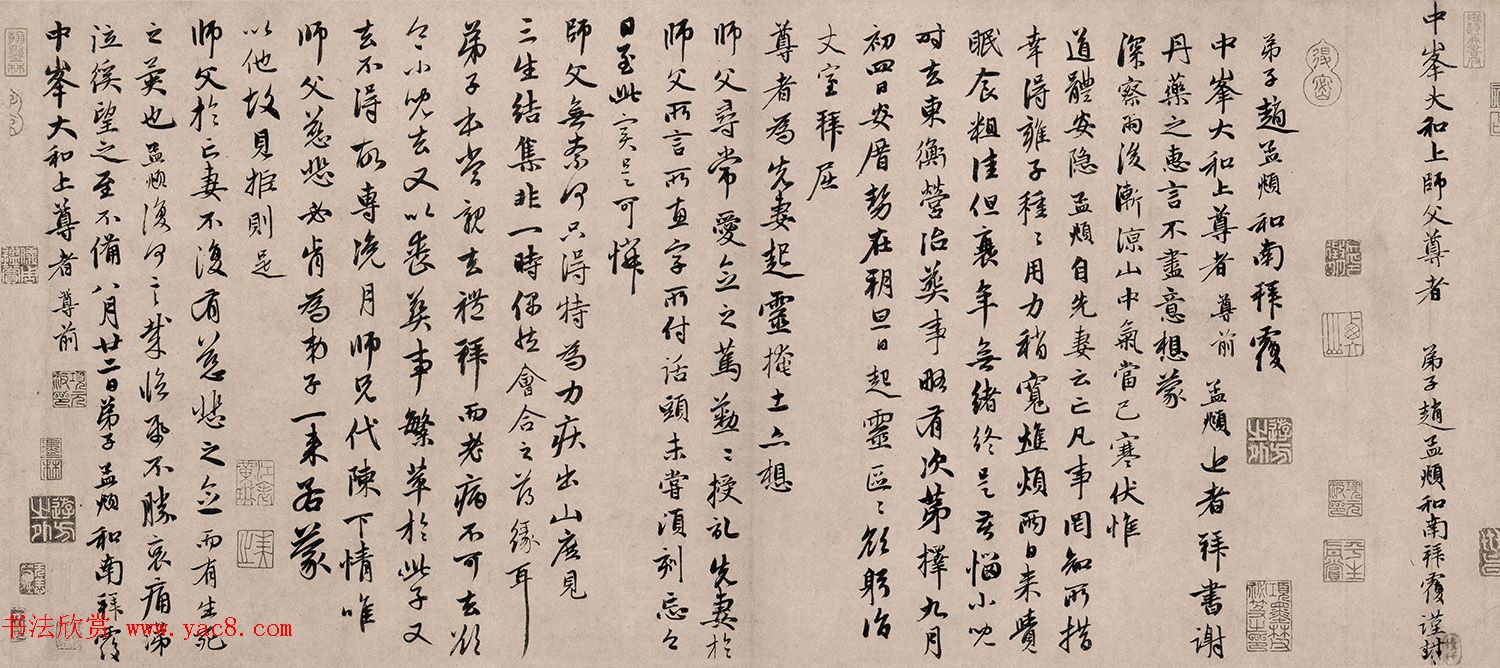 中峯大和上師父尊者 弟子趙孟頫和南拜覆謹封
弟子趙孟頫和南拜覆
中峯大和上尊者尊前 孟頫上者拜書謝
丹藥之惠言不盡意想蒙
深察雨後漸涼山中氣當已寒伏惟
道體安隱孟頫自先妻云亡凡事罔知所措
幸得雍子種〻用力稍寬焦煩兩日來賷
眠食粗佳但衰年無緒終是苦惱小兒
時去東衡營治葬事略有次第擇九月
初四日安厝勢在朝旦日起靈區〻欲躬詣
丈室拜屈
尊者為先妻起靈掩土亦想
師父尋常愛念之篤勤〻授記先妻於
師父所言所直字所付話頭未嘗頃刻忘之
日至此實是可憐
師父無奈何只得特為力疾出山庶見
三生結集非一時偶然會合之薄緣耳
弟子本嘗親去禮拜而老病不可去欲
令小兒去又以喪葬事繁草於此子又
去不得故專浼月師兄代陳下情唯
師父慈悲必肯為弟子一來若蒙
以他故見拒則是
師父於亡妻不復有慈悲之念而有生死
之異也孟頫復何言哉臨紙不勝哀痛涕
泣徯望之至不備八月廿二日弟子孟頫和南拜覆
中峯大和上尊者尊前
书法欣赏 www.yac8.com